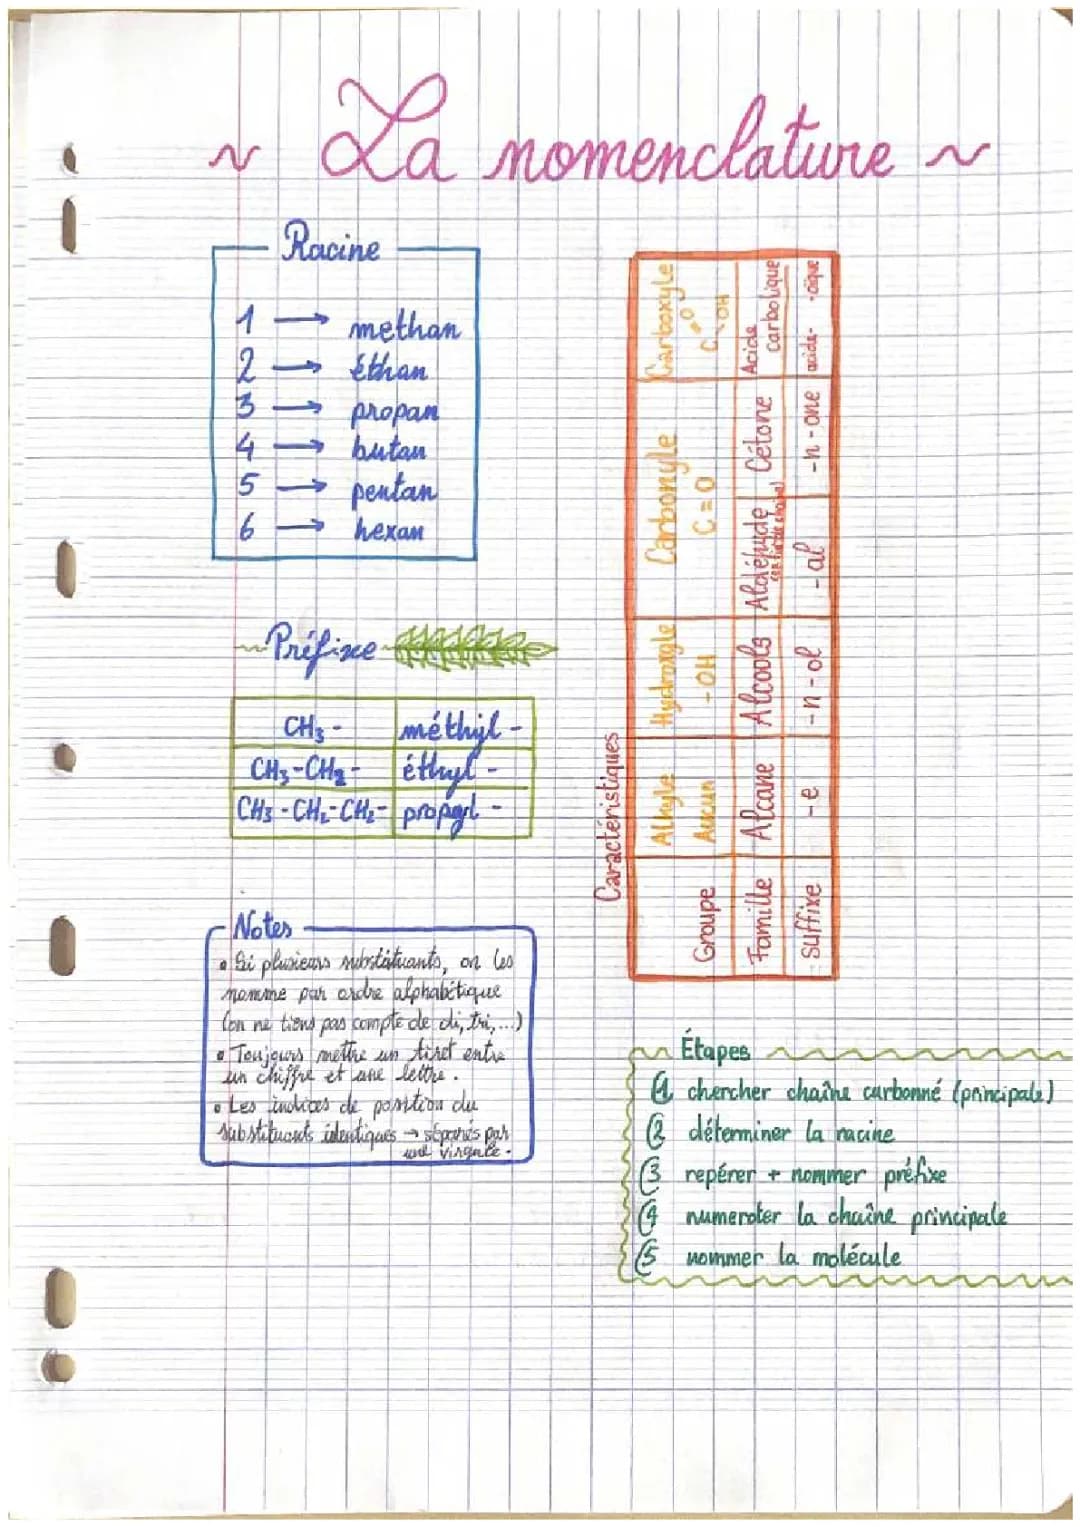 ~ La nomenclature ~
Racine
1 → methan
2 → éthan
3 → propan
4 → butan
5 → pentan
6 → hexan
Préfixe
CH3- méthyl-
CH3-CH2- éthyl-
CH3-CH2-CH2- propyl-
Notes
• Si plusieurs substituants, on les
nomme par ordre alphabétique
(on ne tiens pas compte de di, tri,...)
• Toujours mettre un tiret entre
un chiffre et une lettre.
• Les indices de position du
substituants identiques → séparés par
une virgule.
Caractéristiques
Alkyle Hydroxyle Carbonyle Carboxyle
Groupe Aucun -OH C=O C=O-OH
Famille Alcane Alcools Aldéhyde Cétone Acide Carbolique
Suffixe -e -n-ol -al -n-one acide- -oïque
Étapes
1 chercher chaîne carbonné (principale)
2 déterminer la racine
3 repérer + nommer préfixe
4 numeroter la chaîne principale
5 nommer la molécule